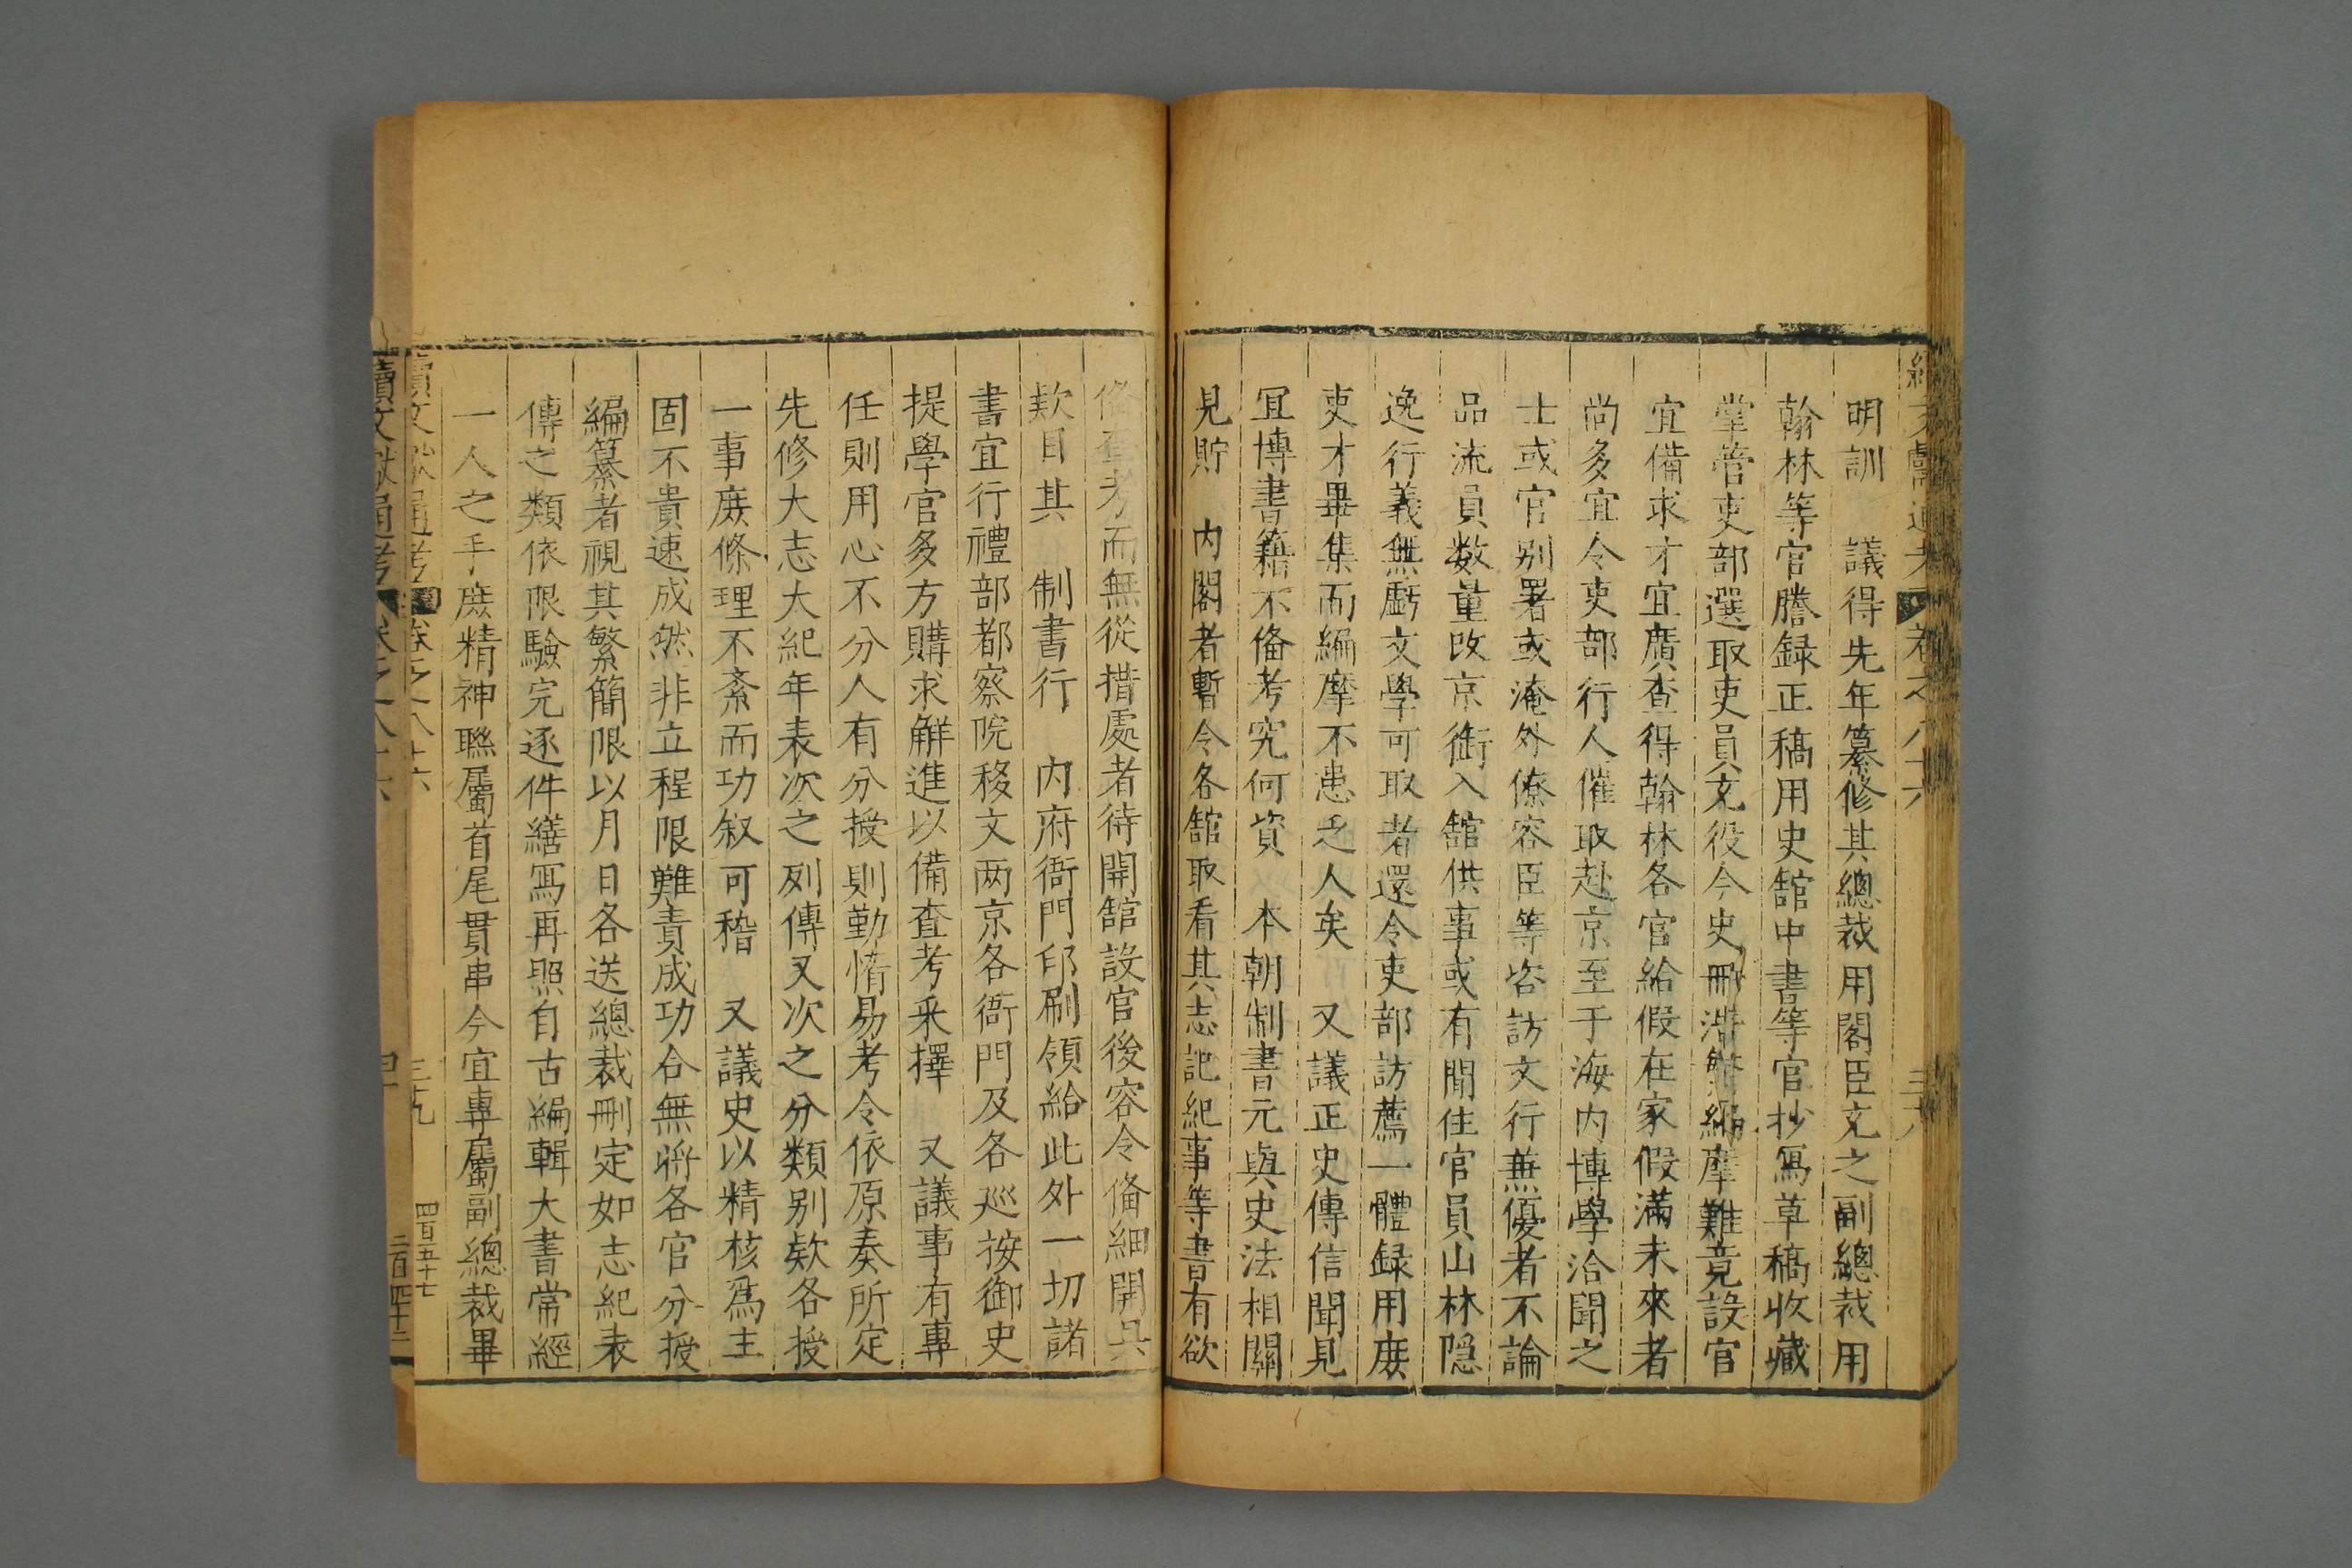 續文獻通考 卷之八十六 三十八
明訓 議得先年纂修其總裁用閣臣文之副總裁用
翰林等官謄録正稿用史舘中書等官抄寫草稿收藏
掌管吏部選取吏員充役今史冊浩繁編摩難竟設官
宜備求才宜廣查得翰林各官給假在家假滿未來者
尚多宜令吏部行人催取赴京至于海内博學洽聞之
士或官别署或淹外僚容臣等咨訪文行兼優者不論
品流員数量改京銜入舘供事或有閒住官員山林隠
逸行義無虧文學可取者還令吏部訪薦一體録用庻
吏才畢集而編摩不患乏人矣 又議正史傳信聞見
冝博書籍不俻考究何資 本朝制書元與史法相關
見貯 内閣者暫令各舘取看其志記紀事等書有欲
俻查考而無從措處者待開舘設官後容令俻細開具
欵目其 制書行 内府衙門印刷領給此外一切諸
書宜行禮部都察院移文两京各衙門及各廵按御史
提學官多方購求解進以備查考采擇 又議事有專
任則用心不分人有分授則勤惰易考令依原奏所定
先修大志大紀年表次之列傳又次之分類别欵各授
一事庻條理不紊而功叙可稽 又議史以精核爲主
固不貴速成然非立程限難責成功合無將各官分授
編纂者視其繁簡限以月日各送總裁刪定如志紀表
傳之類依限驗完逐件繕寫再照自古編輯大書常經
一人之手庻精神聯屬首尾貫串今宜專屬副總裁畢
續文獻通考 卷之八十六 三十九 四百五十七
續文獻通考 卷之八十六 二百四十二